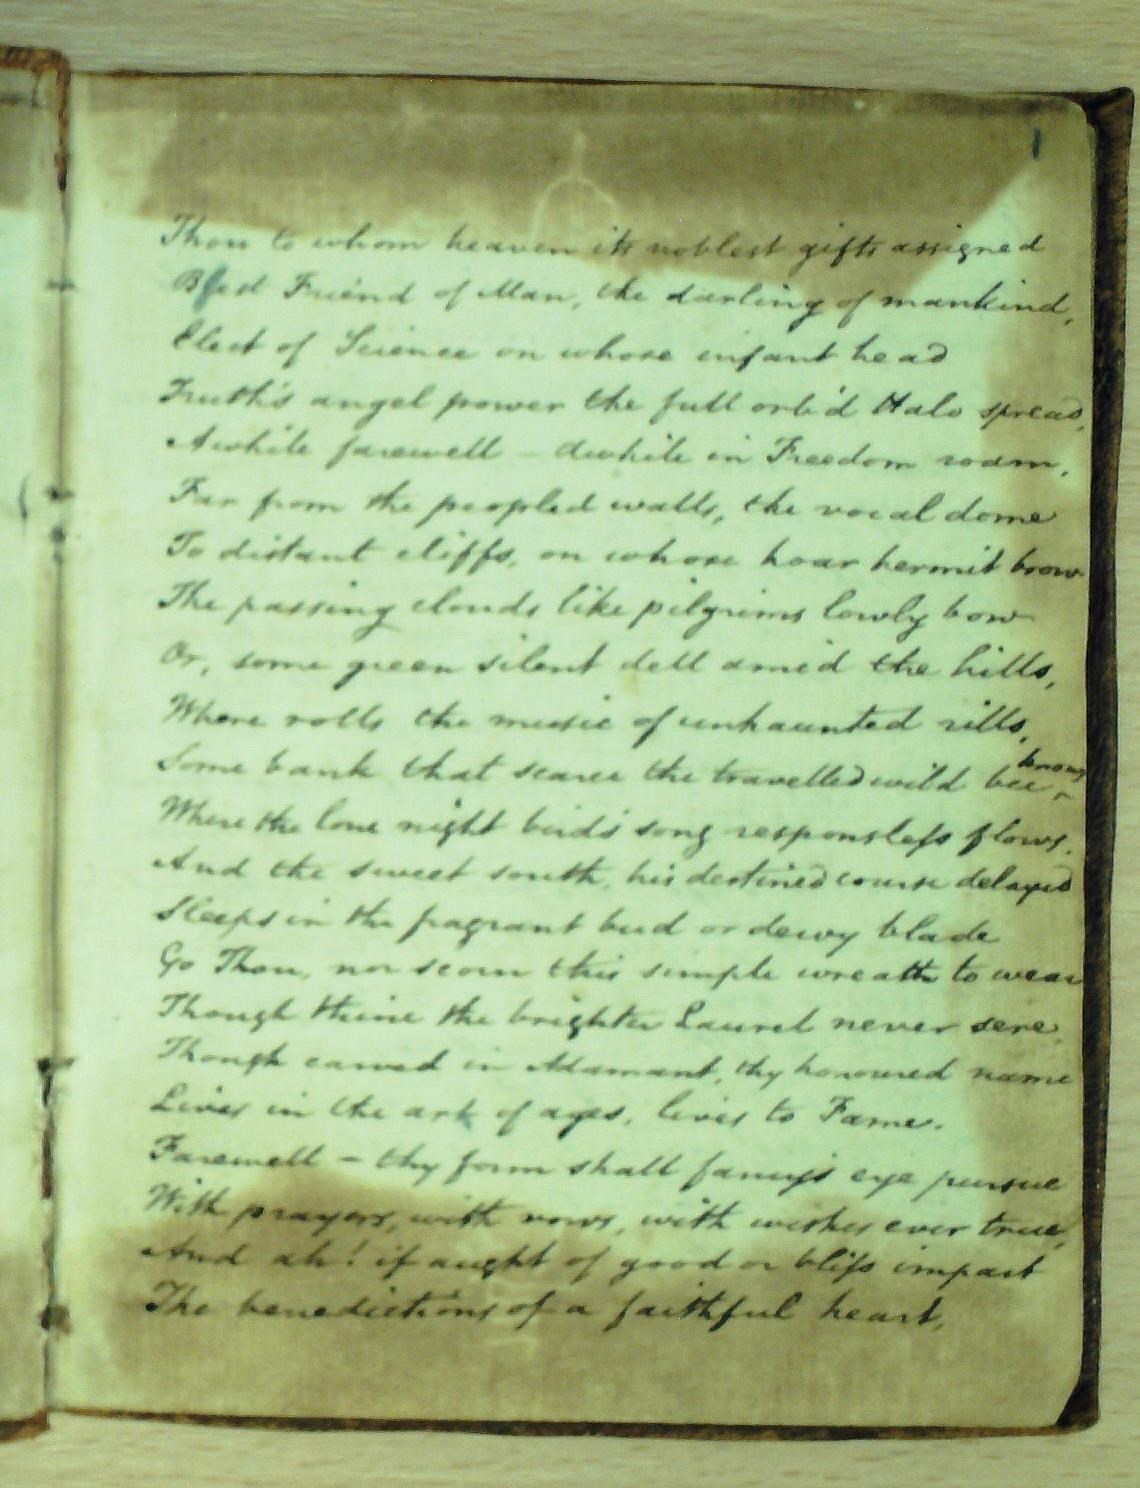 1
Thou to whom heaven its noblest gifts assigned
Blest Friend of Man, the darling of mankind,
Elect of Science on whose infant head
Truth's angel power the full orb'd Halo spread,
Awhile farewell – awhile in Freedom roam,
Far from the peopled walls, the vocal dome
To distant cliffs, on whose hoar hermit brow
The passing clouds like pilgrims lowly bow
Or, some green silent dell amid the hills,
Where rolls the music of unhaunted rills,
Some bank that scarce the travelled wild bee knows
Where the lone night bird's song responsless flows.
And the sweet south, his destined course delayed
Sleeps in the fragrant bud or dewy blade
Go Thou, nor scorn this simple wreath to wear
Though thine the brighter Laurel never sere.
Though carved in Adamant, thy honoured name
Lives in the ark of ages, lives to Fame.
Farewell – thy form shall fancy's eye pursue
With prayers, with vows, with wishes ever true,
And ah! if aught of good or bliss impart
The benedictions of a faithful heart,